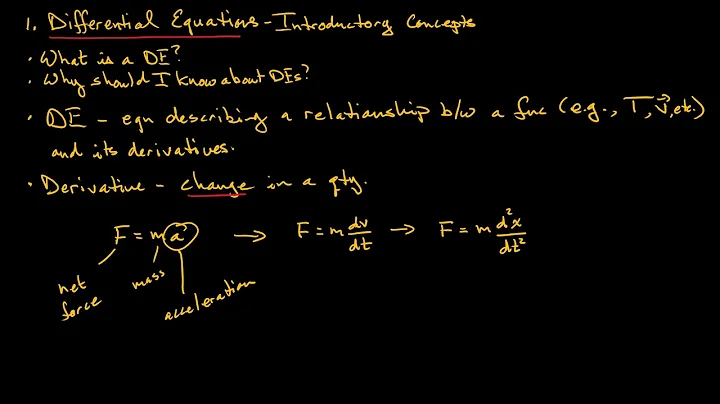 1. Differential Equations - Introductory Concepts
• What is a DE?
• Why should I know about DEs?
• DE - eqn describing a relationship b/w a func (e.g., T, v⃗, etc.)
and its derivatives.
• Derivative - change in a qty.
F = ma⃗ → F = m dv/dt → F = m d²x/dt²
net force
mass
acceleration